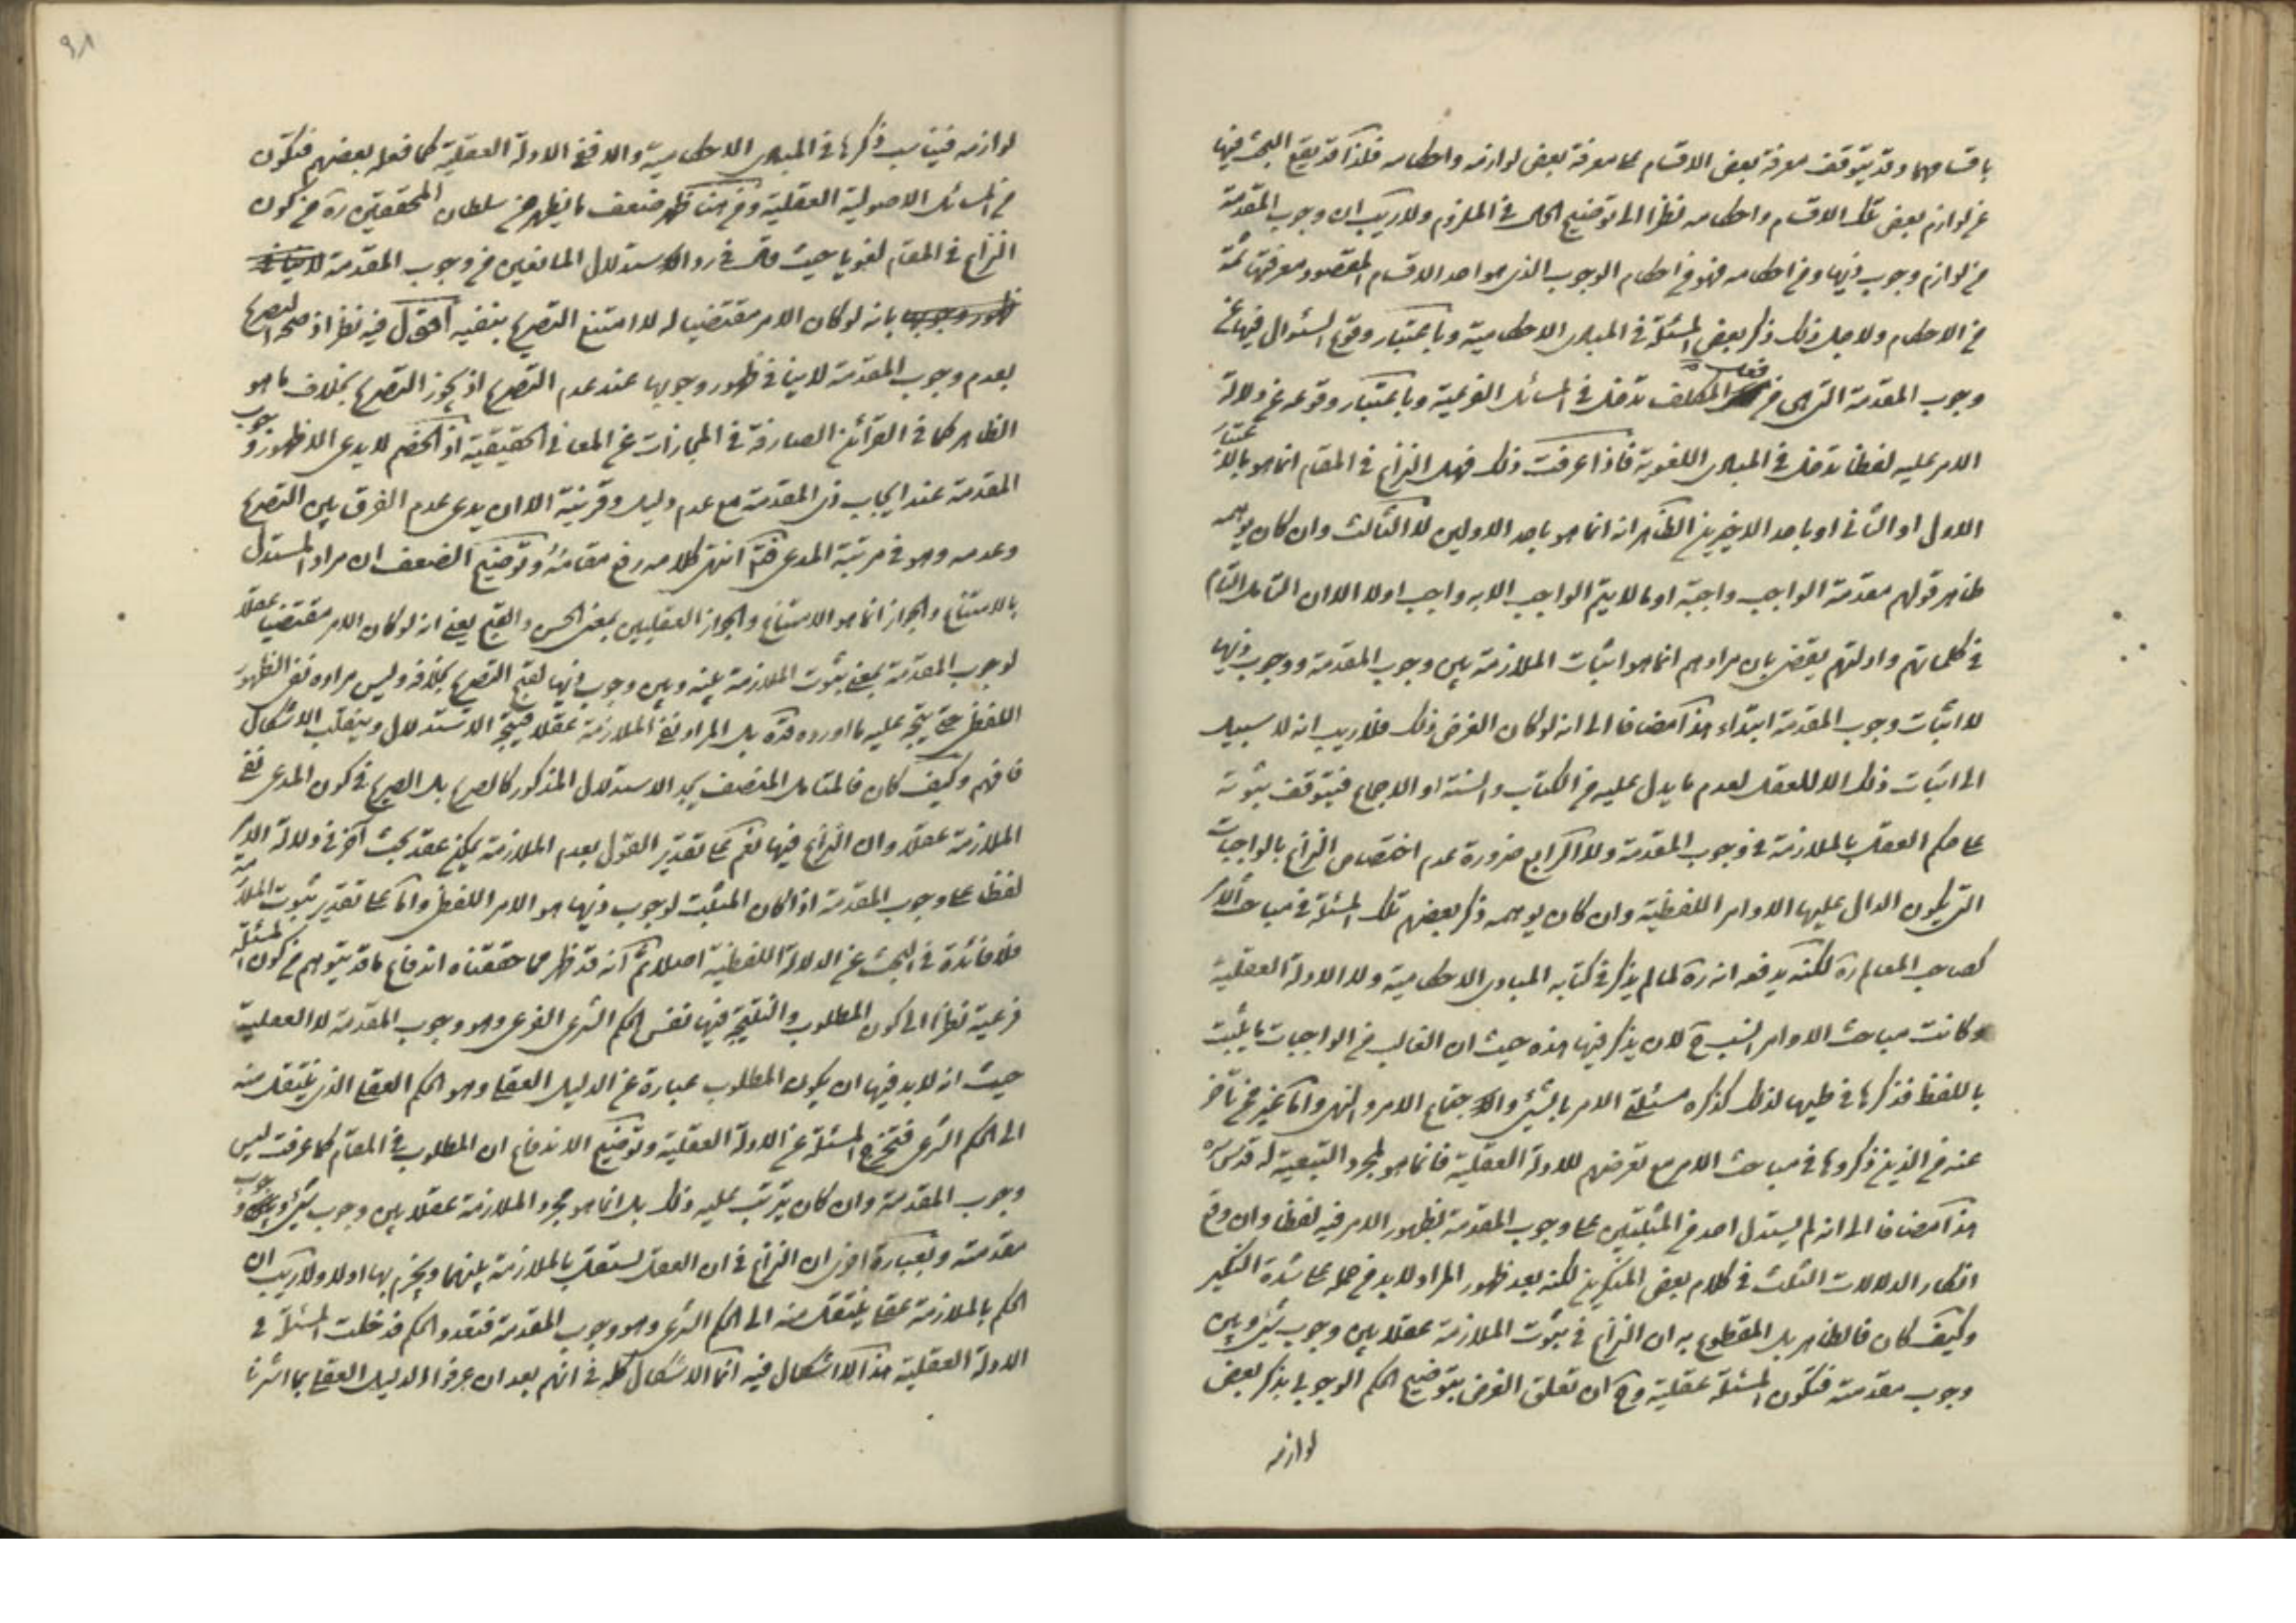 باقسامهما وقد يتوقف معرفة بعض الاقسام على معرفة بعض لوازمه واحكامه فلذا قد يقع البحث فيها
عن لوازم بعض تلك الاقسام واحكامه نظرا الى توضيح الحال في الملزوم ولا ريب ان وجوب المقدمة
من لوازم وجوب ذيها ومن احكامه فهو من احكام الوجوب الذي هو احد الاقسام المقصود معرفتها ثمة
من الاحكام ولاجل ذلك ذكر بعض المسئلة في المبادى الاحكامية وباعتبار وقوع السئوال فيها عن
وجوب المقدمة التي هي من فعل المكلف تدخل في المسائل الفرعية وباعتبار وقوعه عن دلالة
الامر عليه لفظا تدخل في المبادى اللغوية فاذا عرفت ذلك فهل النزاع في المقام انما هو بالاعتبار
الاول او الثاني او باحد الاخيرين الظاهر انه انما هو باحد الاولين لا الثالث وان كان يوهمه
ظاهر قولهم مقدمة الواجب واجبة او ما لا يتم الواجب الا به واجب اولا الا ان التامل التام
في كلماتهم وادلتهم يقضى بان مرادهم انما هو اثبات الملازمة بين وجوب المقدمة ووجوب ذيها
لا اثبات وجوب المقدمة ابتداء هذا مضافا الى انه لو كان الغرض ذلك فلا ريب انه لا سبيل
الى اثبات ذلك الا للعقل لعدم ما يدل عليه من الكتاب والسنة او الاجماع فيتوقف ثبوته
على حكم العقل بالملازمة في وجوب المقدمة ولا الرابع ضرورة عدم اختصاص النزاع بالواجبات
التي يكون الدال عليها الاوامر اللفظية وان كان يوهمه ذكر بعضهم تلك المسئلة في مباحث الامر
كصاحب المعالم ره لكنه يدفعه انه ره لما لم يذكر في كتابه المبادى الاحكامية ولا الادلة العقلية
وكانت مباحث الاوامر انسب ح لان يذكر فيها هذه حيث ان الغالب في الواجبات ما يثبت
باللفظ فذكرها في طيها لذلك كذكره مسئلة الامر بالشئ والاجتماع الامر والنهى واما غيره ممن تاخر
عنه من الذين ذكروها في مباحث الامر مع تعرضهم للادلة العقلية فانما هو لمجرد التبعية له قدس سره
هذا مضافا الى انه لم يستدل احد من المثبتين على وجوب المقدمة بظهور الامر فيه لفظا وان وقع
انكار الدلالات الثلث في كلام بعض المنكرين لكنه بعد ظهور المراد لا بد من حمله على شدة النكير
وكيف كان فالظاهر بل المقطوع به ان النزاع في ثبوت الملازمة عقلا بين وجوب شئ وبين
وجوب مقدمته فتكون المسئلة عقلية وح ان تعلق الغرض بتوضيح الحكم الوجوبى بذكر بعض
لوازمه
٩٨
لوازمه فيناسب ذكرها في المبادى الاحكامية والا ففي الادلة العقلية كما فعله بعضهم فتكون
من المسائل الاصولية العقلية ومن هنا ظهر ضعف ما يظهر من سلطان المحققين ره من كون
النزاع في المقام لغويا حيث قال في رد الاستدلال المانعين من وجوب المقدمة
بانه لو كان الامر مقتضيا له لامتنع التصريح بنفيه اقول فيه نظر اذ صحة التصريح
بعدم وجوب المقدمة لا ينافي ظهور وجوبها عند عدم التصريح اذ يجوز التصريح بخلاف ما هو
الظاهر كما في القرائن الصارفة في المجازات عن المعاني الحقيقية اذ الخصم لا يدعى الا ظهور وجوب
المقدمة عند ايجاب ذي المقدمة مع عدم دليل وقرينة الا ان يدعى عدم الفرق بين التصريح
وعدمه وهو في مرتبة المدعى فتم انتهى كلامه رفع مقامه وتوضيح الضعف ان مراد المستدل
بالامتناع والجواز انما هو الامتناع والجواز العقليين بمعنى الحسن والقبح يعنى انه لو كان الامر مقتضيا عقلا
لوجوب المقدمة بمعنى ثبوت الملازمة بينه وبين وجوب ذيها لقبح التصريح بخلافه وليس مراده نفى الظهور
اللفظى حتى يتجه عليه ما اورده قده بل المراد نفى الملازمة عقلا فيتجه الاستدلال وينقلب الاشكال
فافهم وكيف كان فالمتامل المنصف يجد الاستدلال المذكور كالصريح بل الصريح في كون المدعى نفى
الملازمة عقلا وان النزاع فيها نعم على تقدير القول بعدم الملازمة يمكن عقد بحث آخر في دلالة الامر
لفظا على وجوب المقدمة اذا كان المثبت لوجوب ذيها هو الامر اللفظى واما على تقدير ثبوت الملازمة
فلا فائدة في البحث عن الدلالة اللفظية اصلا ثم انه قد ظهر مما حققناه اندفاع ما قد يتوهم من كون المسئلة
فرعية نظرا الى كون المطلوب والنتيجة فيها نفس الحكم الشرعى الفرعى وهو وجوب المقدمة لا العقلية
حيث انه لا بد فيها ان يكون المطلوب عبارة عن الدليل العقلى وهو الحكم العقلى الذي ينتقل منه
الى الحكم الشرعى فتخرج المسئلة عن الادلة العقلية وتوضيح الاندفاع ان المطلوب في المقام كما عرفت ليس
وجوب المقدمة وان كان يترتب عليه ذلك بل انما هو مجرد الملازمة عقلا بين وجوب شئ ووجوب
مقدمته وبعبارة اخرى ان النزاع في ان العقل يستقل بالملازمة بينهما ويجزم بها اولا ولا ريب ان
الحكم بالملازمة عقلى ينتقل منه الى الحكم الشرعى وهو وجوب المقدمة فدخلت المسئلة في
الادلة العقلية هذا لا اشكال فيه انما الاشكال كله في انهم بعد ان عرفوا الدليل العقلى بما اشرنا